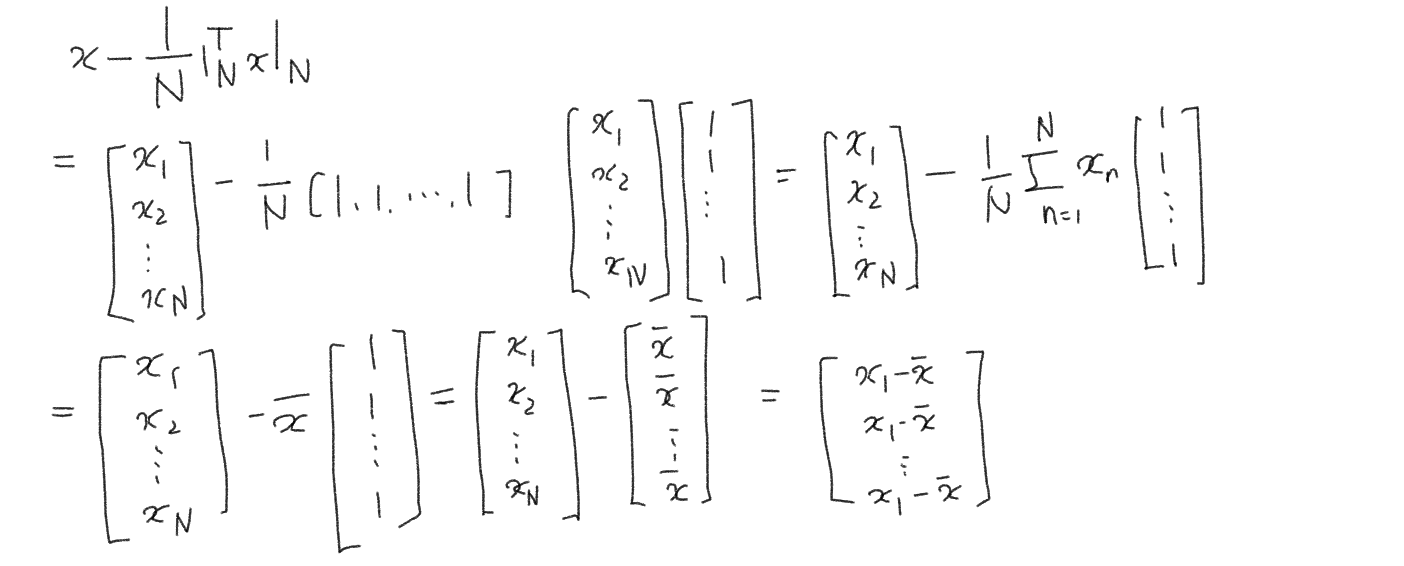 x - \frac{1}{N} 1_N^T x 1_N
= \begin{bmatrix} x_1 \\ x_2 \\ \vdots \\ x_N \end{bmatrix} - \frac{1}{N} [1, 1, \cdots, 1] \begin{bmatrix} x_1 \\ x_2 \\ \vdots \\ x_N \end{bmatrix} \begin{bmatrix} 1 \\ 1 \\ \vdots \\ 1 \end{bmatrix} = \begin{bmatrix} x_1 \\ x_2 \\ \vdots \\ x_N \end{bmatrix} - \frac{1}{N} \sum_{n=1}^{N} x_n \begin{bmatrix} 1 \\ 1 \\ \vdots \\ 1 \end{bmatrix}
= \begin{bmatrix} x_1 \\ x_2 \\ \vdots \\ x_N \end{bmatrix} - \bar{x} \begin{bmatrix} 1 \\ 1 \\ \vdots \\ 1 \end{bmatrix} = \begin{bmatrix} x_1 \\ x_2 \\ \vdots \\ x_N \end{bmatrix} - \begin{bmatrix} \bar{x} \\ \bar{x} \\ \vdots \\ \bar{x} \end{bmatrix} = \begin{bmatrix} x_1 - \bar{x} \\ x_1 - \bar{x} \\ \vdots \\ x_1 - \bar{x} \end{bmatrix}